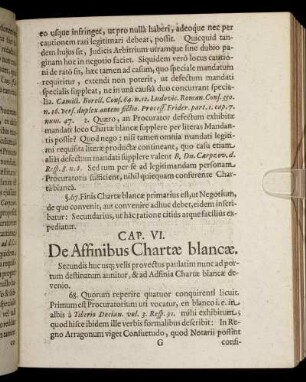 eo usque infringet, ut pro nulla haberi, adeoque nec per
cautionem rati legitimari debeat, possit. Quicquid tan-
dem hujus sit, Judicis Arbitrium utramque sine dubio pa-
ginam hoc in negotio faciet. Siquidem verò locus cautio-
ni de rato sit, hæc tamen ad casum, quo speciale mandatum
requiritur, extendi non poterit, ut defectum mandati
specialis suppleat, ne in unâ causâ duo concurrant specia-
lia.
num. 47. 2. Quæro, an Procurator defectum exhibitæ
mandati loco Chartæ blancæ supplere per literas Manda-
tis possit? Quod nego: nisi tamen omnia mandati legiti-
mi requisita literæ productæ contineant, quo casu etiam
aliàs defectum mandati supplere valent
Resp. Sed cum per se ad legitimandam personam
Procuratoris sufficiant, nihil quicquam conferente Char-
tâ blancâ.
§. 67. Finis Chartæ blancæ primarius est, ut Negotium,
de quo convenit, aut convenire adhuc debet, eidem inseri-
batur: Secundarius, ut hâc ratione citiùs atque faciliùs ex-
pediatur.
CAP. VI.
De Affinibus Chartæ blancæ.
Secundis huc usq; velis provectus paulatim nunc ad por-
tum destinatum annitor, & ad Affinia Chartæ blancæ de-
venio.
68. Quorum reperire quatuor conquirenti licuit.
Primum est Procuratorium uti vocatur, en blanco i. e. in
albis à Tiberio Decian. vol. 3. Resp. 31. mihi exhibitum;
quod hisce ibidem ille verbis formalibus describit: In Re-
gno Arragonum viget Consuetudo, quod Notarii possint
G confi-